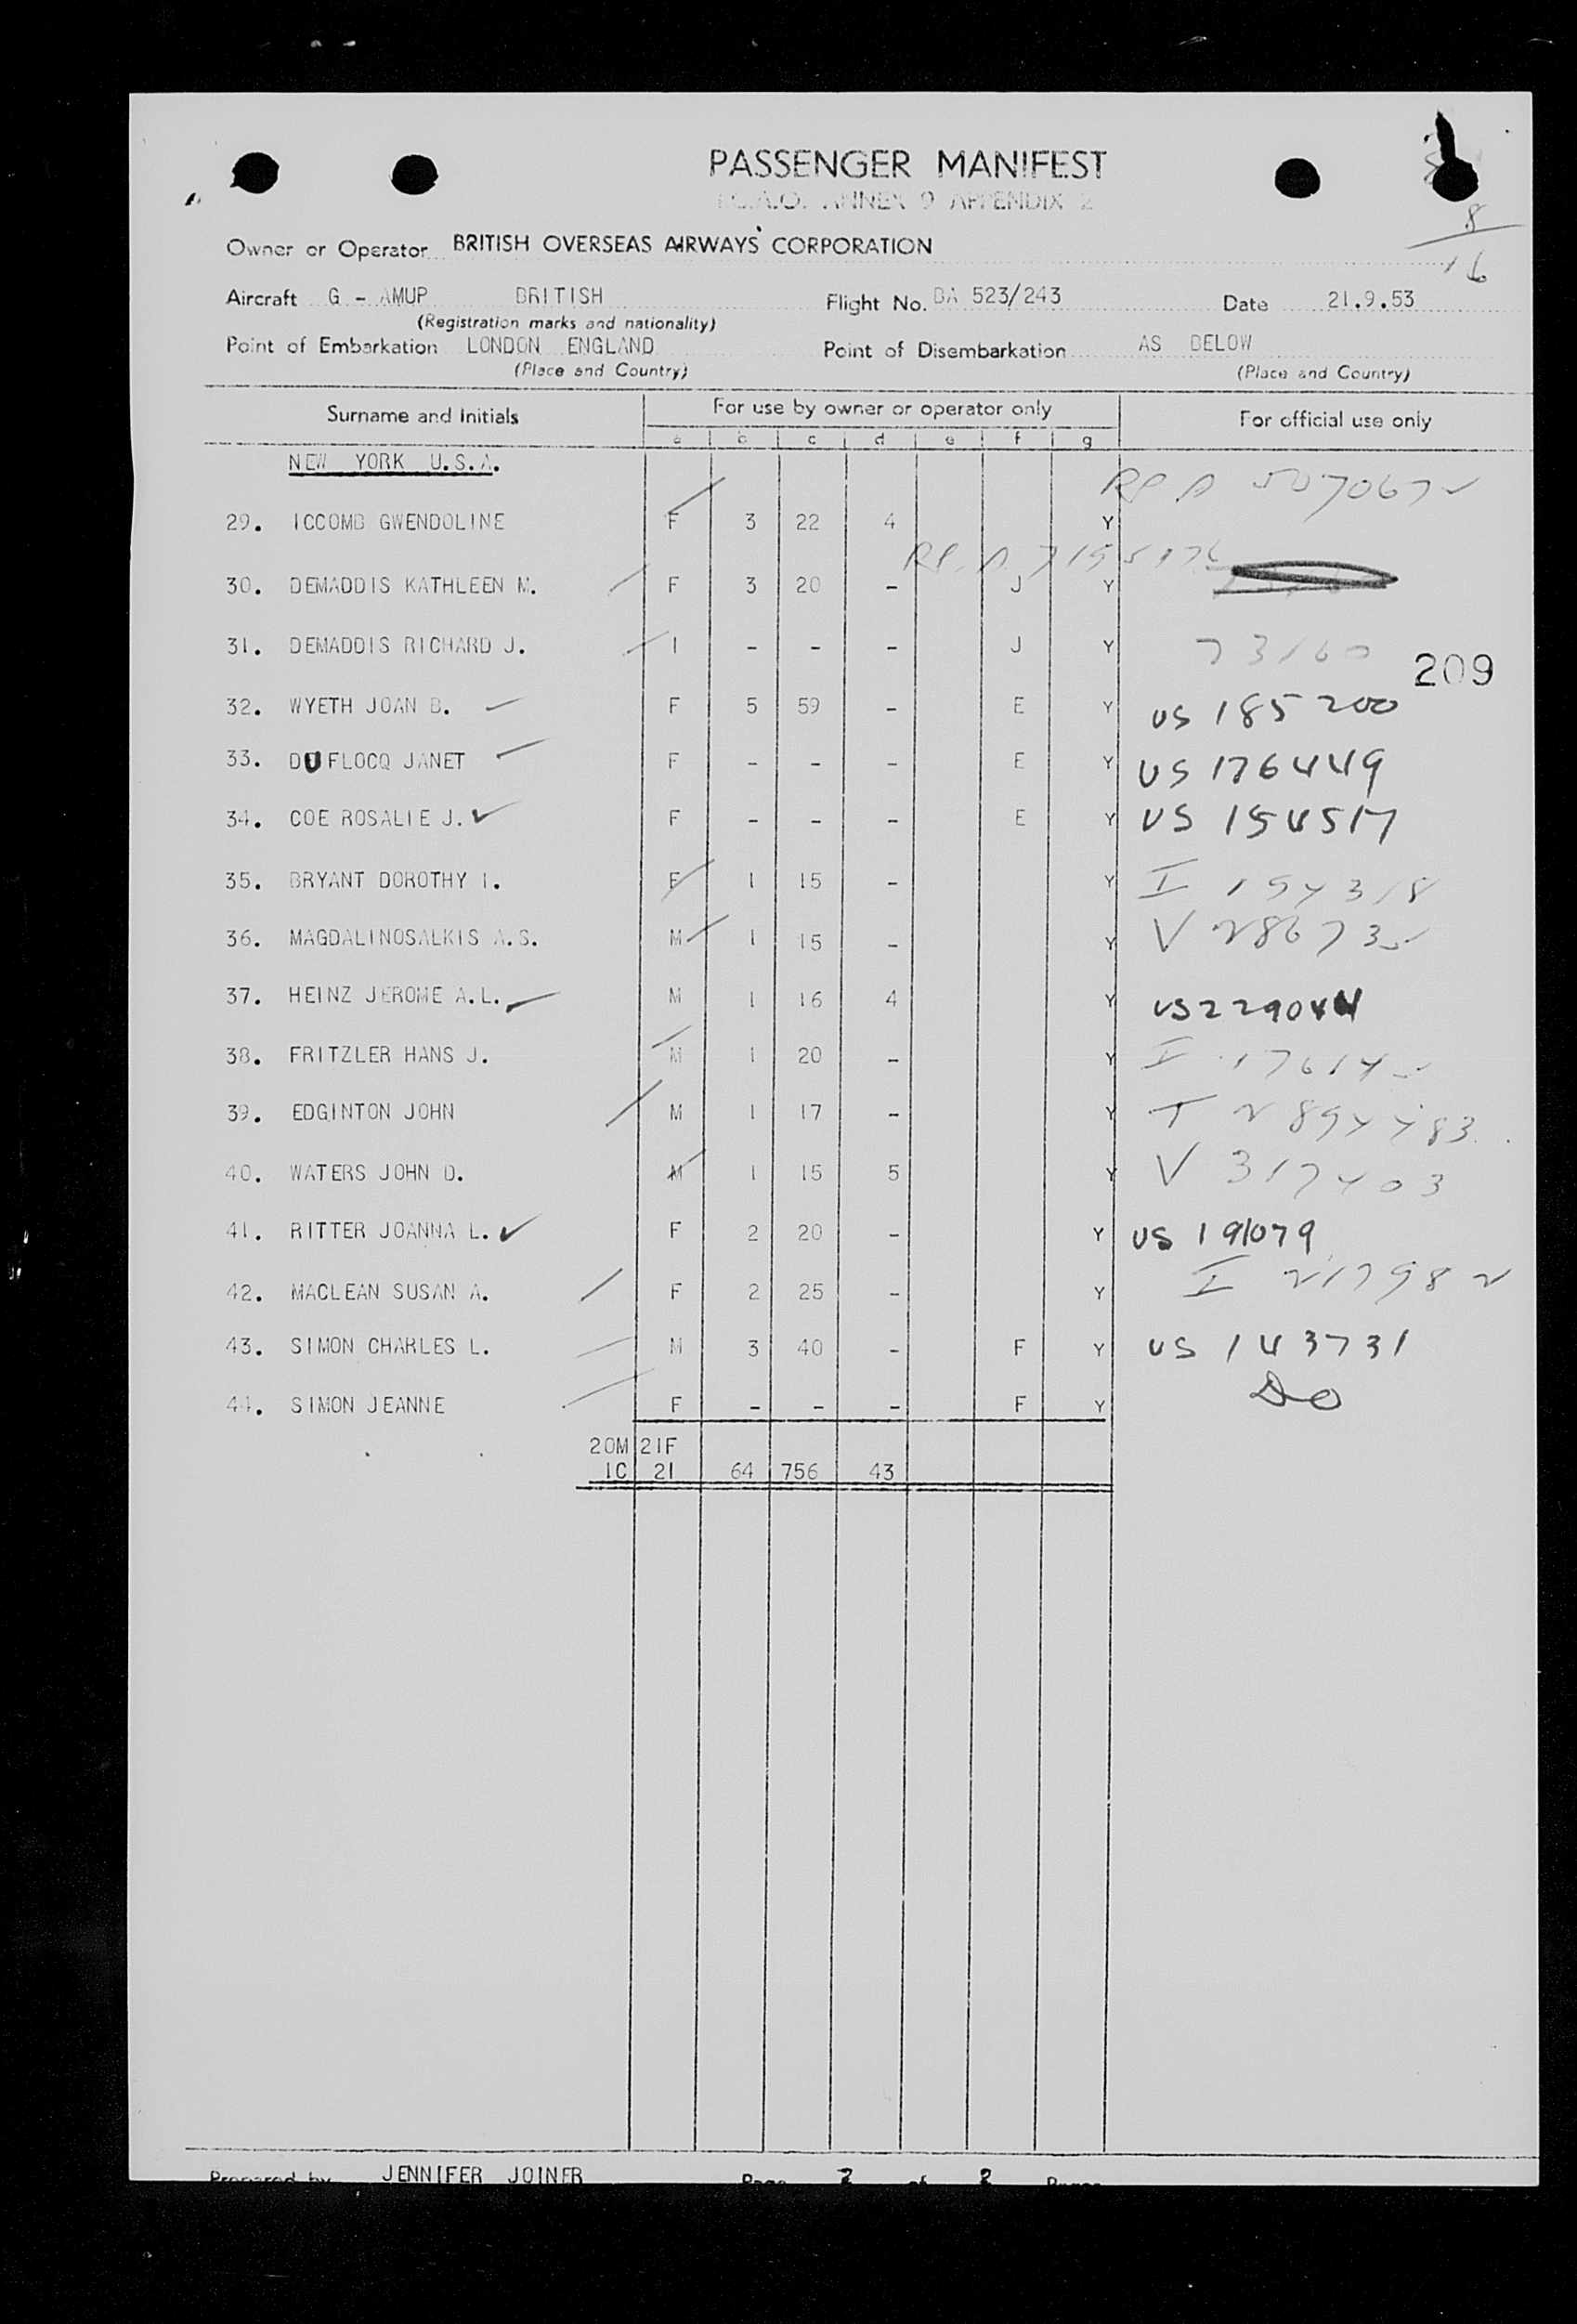 PASSENGER MANIFEST
I.C.A.O. ANNEX 9 APPENDIX 2
8
16
Owner or Operator BRITISH OVERSEAS AIRWAYS CORPORATION
Aircraft G - AMUP BRITISH Flight No. BA 523/243 Date 21.9.53
(Registration marks and nationality)
Point of Embarkation LONDON ENGLAND Point of Disembarkation AS BELOW
(Place and Country) (Place and Country)
Surname and Initials For use by owner or operator only For official use only
a b c d e f g
NEW YORK U.S.A.
29. ICCOMB GWENDOLINE F 3 22 4 Y
30. DEMADDIS KATHLEEN M. F 3 20 - J Y
31. DEMADDIS RICHARD J. I - - - J Y 73160
209
32. WYETH JOAN B. F 5 59 - E Y US 185200
33. DUFLOCQ JANET F - - - E Y US 176449
34. COE ROSALIE J. F - - - E Y US 154517
35. BRYANT DOROTHY I. F 1 15 - Y I 154318
36. MAGDALINOSALKIS A.S. M 1 15 - Y V
37. HEINZ JEROME A.L. M 1 16 4 Y US 229044
38. FRITZLER HANS J. M 1 20 - Y I
39. EDGINTON JOHN M 1 17 - Y
40. WATERS JOHN D. M 1 15 5 Y V 317403
41. RITTER JOANNA L. F 2 20 - Y US 191079
42. MACLEAN SUSAN A. F 2 25 - Y I
43. SIMON CHARLES L. M 3 40 - F Y US 143731
44. SIMON JEANNE F - - - F Y Do
20M 21F
1C 21 64 756 43
Prepared by JENNIFER JOINER Page 2 of 2 Pages